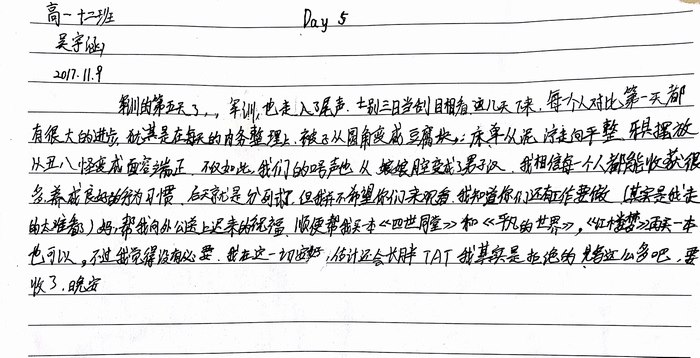 高一十二班
Day 5
吴宇涵
2017.11.9
军训的第五天了,,,军训也走入了尾声.士别三日当刮目相看,这几天下来,每个人对比第一天都
有很大的进步,尤其是在每天的内务整理上,被子从圆角变成豆腐块;床单从泥泞走向平整,牙具摆放
从丑八怪变成面容端正,不仅如此,我们的吼声也从娘娘腔变成了男子汉,我相信每一个人都能收获很
多,养成良好的行为习惯,后天就是分列式了,但我并不希望你们来观看,我知道你们还有工作要做(其实是我走
的太难看)妈:帮我向外公送上迟来的祝福,顺便帮我买本《四世同堂》和《平凡的世界》,《红楼梦》再买一本
也可以,不过我觉得没有必要.我在这一切安好,估计还会长胖TAT我其实是拒绝的.先写这么多吧,要
收了,晚安